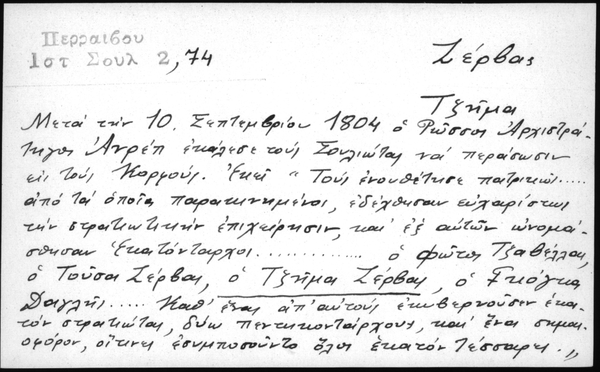 Περραιβου
Ιστ Σουλ 2, 74
Ζέρβας
Τζήμα
Μετά τήν 10. Σεπτεμβρίου 1804 ὁ Ρῶσσος Ἀρχιστρά-
τηγος Ἀνρέπ ἐκάλεσε τούς Σουλιώτας νά περάσωσιν
εἰς τούς Κορφούς. Ἐκεῖ "Τούς ἐνουθέτησε πατρικῶς.....
ἀπό τά ὁποῖα παρακινημένοι, ἐδέχθησαν εὐχαρίστως
τήν στρατιωτικήν ἐπιχείρησιν, καί ἐξ αὐτῶν ὠνομά-
σθησαν Ἑκατόνταρχοι.............. ὁ φῶτος Τζαβέλλας,
ὁ Τοῦσας Ζέρβας, ὁ Τζήμα Ζέρβας, ὁ Γκόγκα
Δαγλῆς..... Καθ' ἕνας ἀπ' αὐτούς ἐκυβερνοῦσεν ἑκα-
τόν στρατιώτας, δύω πεντηκοντάρχους, καί ἕνα σημαι-
οφόρον, οἵτινες ἐσυμποσοῦντο ὅλοι ἑκατόν τέσσαρες.,,